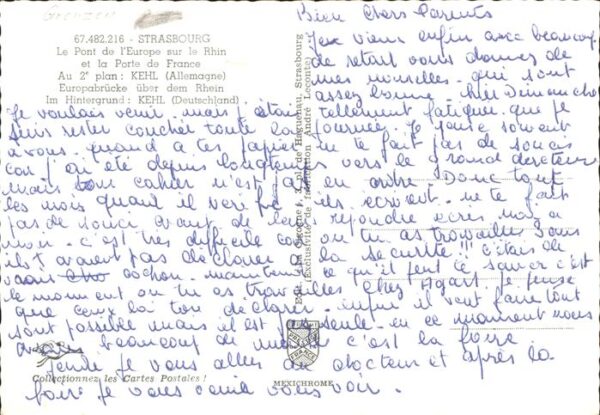 67.482.216 - STRASBOURG
Le Pont de l'Europe sur le Rhin
et la Porte de France
Au 2e plan : KEHL (Allemagne)
Europabrücke über dem Rhein
Im Hintergrund : KEHL (Deutschland).
Bien chers Parents
Je viens enfin avec beaucoup
de retard vous donner de
mes nouvelles qui sont
assez bonne hier Dimanche
Je voulais venir mais j'étais tellement fatiguer que je
suis rester coucher toute la journée. Je pense souvent
à vous. quand a tes papiers ne te fait pas de soucis
car j'ai été depuis longtemps vers le grand
mais ton cahier n'est pas en ordre. Donc tout
les mois quand il vere ils ecrivent. ne te fait
pas de souci avant de leur repondre ecris moi a
moi. c'est très difficile car ou tu as travailler Sans
ils t'avaient pas declarer a la securite!!! C'étais de
vrais cochon. maintenant ce qu'il feut ce savoir c'est
le moment ou tu as travailles chez Je pense
que ceux la ton declarer. enfin il vont faire tout
sont possible mais il est pas seule. en ce moment nous
beaucoup de c'est la foire
Jeudi Je vous aller au docteur et après la
foire Je vous vous voir.
Edit. La Cigogne, 3, pl. de Haguenau, Strasbourg
(Exclusivité de distribution André Leconte)
FRANCE
Collectionnez les Cartes Postales !
MEXICHROME